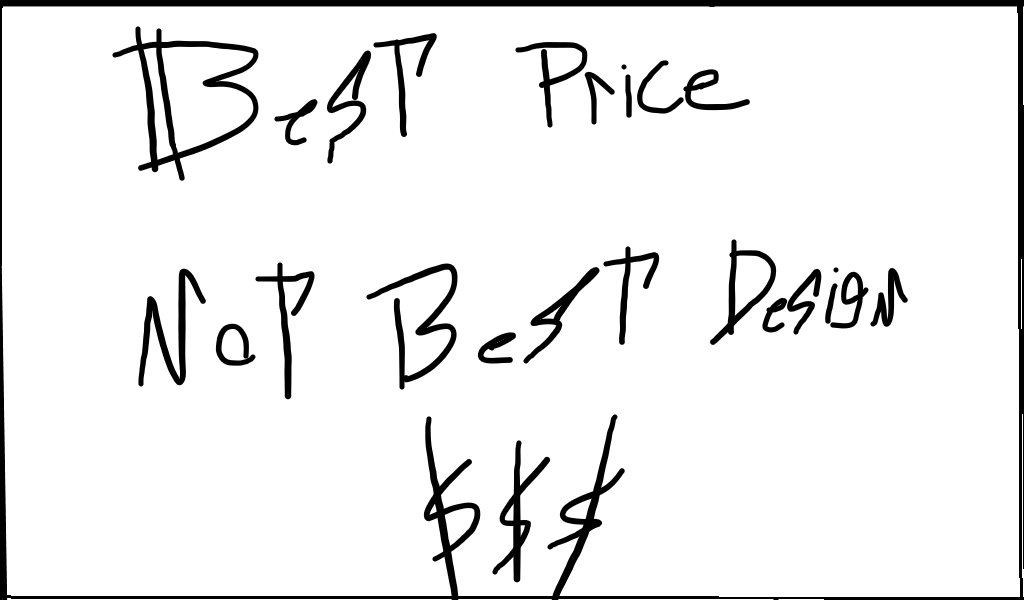 BesT Price
NoT BesT Design
$$$